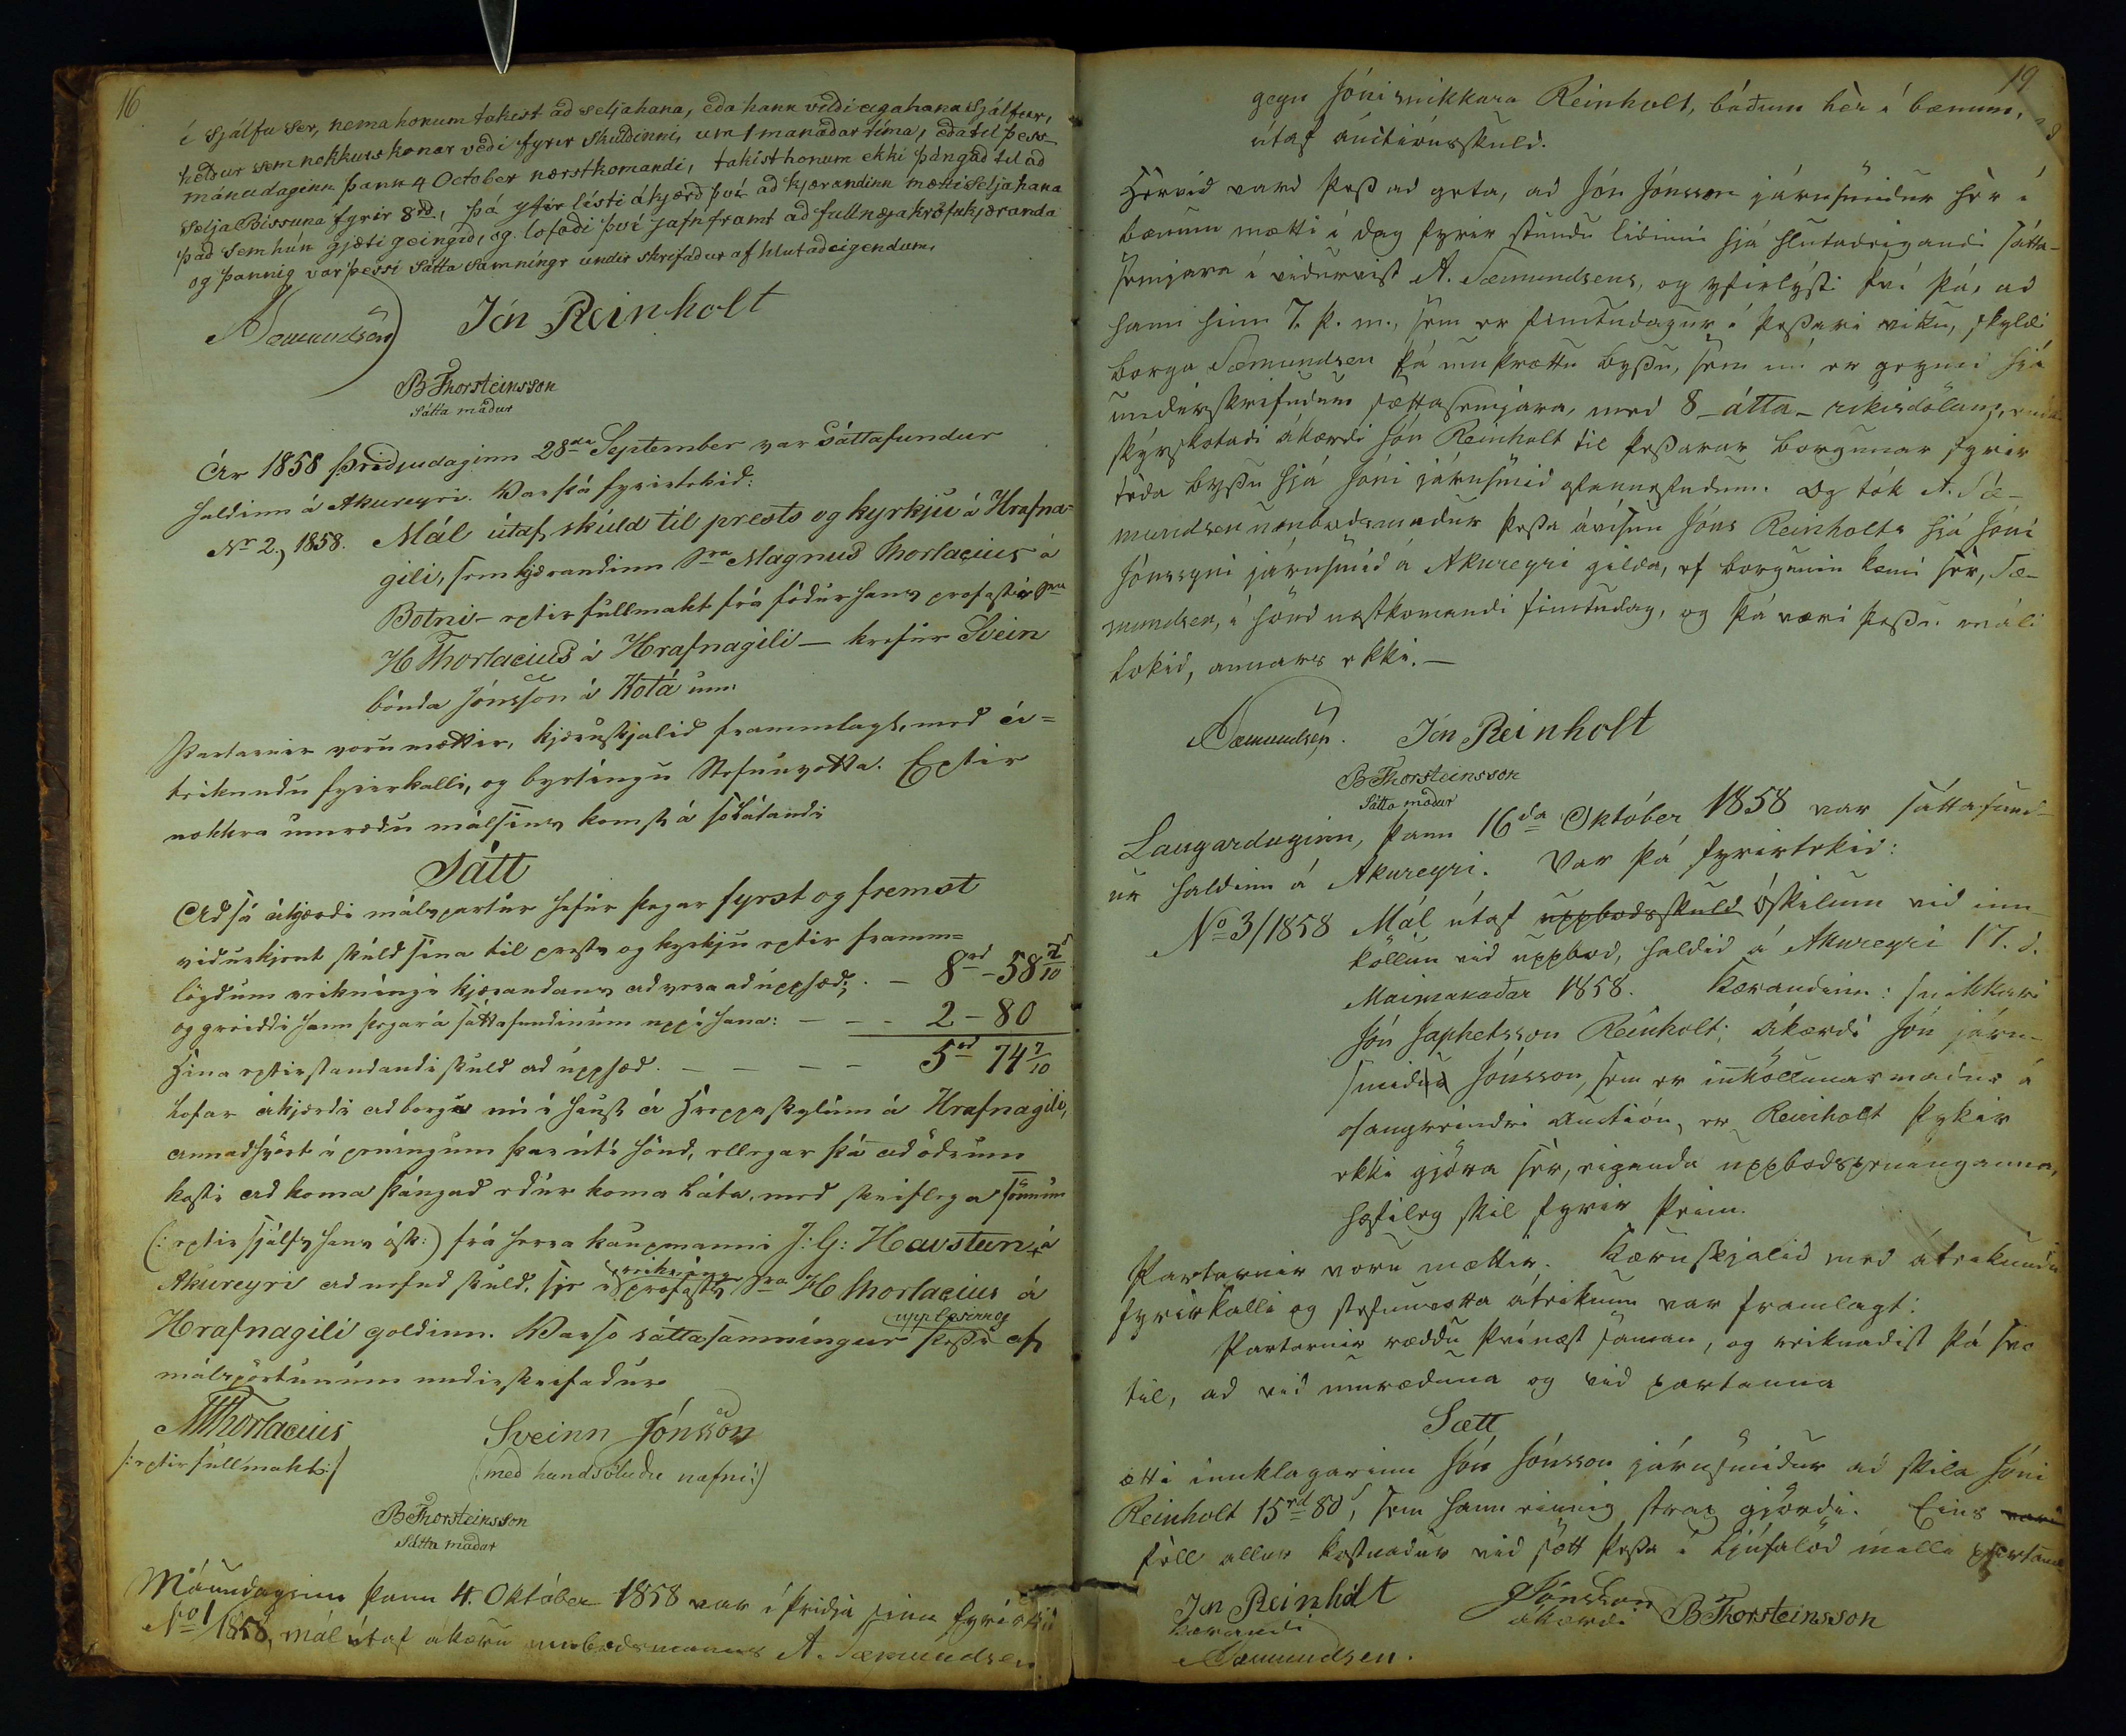 16
í sjálfu ser, nema honum takist ad selja hana, eda hann vildi eiga hana sjálfur,
heldur sem nokkurskonar vedi fyrir skuldinni, um 1 manadar tíma, eda til þess
mánudaginn þann 4 October nærstkomandi, takist honum ekki þángad til ad
selja Bissuna fyrir 8rd, þá yfir lísti ákjærdi því ad kjærandinn mætti selja hana
þad sem hún gjæti geingid, og lofadi því jafnframt ad fullnægja kröfu kjæranda
og þannig var þessi Sátta Samníngr undir skrifadur af hlutadeigendum.
ASæmundsen Jón Reinholt
B Thorsteinsson
Sátta madur
Ár 1858 þridjudaginn 28da September var Sáttafundur
haldinn á Akureyri. Var þá fyrirtekid:
No 2., 1858. Mál útaf skuld til prests og kyrkju á Hrafna=
gili, sem kjærandinn Sra Magnus Thorlacius á
Botni – eptir fullmakt frá födur hans profasti Sra
H Thorlacius á Hrafnagili – krefur Svein
bónda Jónsson á Kotá um.
Partarnir voru mættir, kjæruskjalid frammlagt, med á=
teiknudu fyrirkalli, og byrtíngu Stefnuvotta. Eptir
nokkra umrædu málsins komst á svolátandi
Sátt
Ad sá ákjærdi málspartur hefur þegar fyrst og fremst
vidurkjent skuld sína til prests og kyrkju eptir framm=
lögdum reikníngi kjærandans ad vera ad upphæd; . – 8rd – 58 7/10 s
og greiddi hann þegar á sáttafundinum uppí hana: – – - 2 – 80
Hina eptirstandandi skuld ad upphæd. – – – – 5rd 74 7/10
lofar ákjærdi ad borga nú í haust á Hreppaskilum á Hrafnagili,
annadhvört í peníngum þar útí hönd, ellegar þá ad ödrum
kosti ad koma þángad edur koma láta, med skriflega sönnun
(: eptir sjálfs hans ósk :) frá herra kaupmanni J: G: Havsteen á
Akureyri ad nefnd skuld, sje í reikníng profasts Sra H Thorlacius á
Hrafnagili goldinn. Var so sáttasamníngur þessi upplesinn og af
málspörtunum undirskrifadur
MThorlacius Sveinn Jónsson
/: eptir fullmakt :/ (med handsöludu nafni :)
B Thorsteinsson
Sátta madur
Mánudaginn þann 4. Október 1858 var í þridja sinn fyrirtekid
No 1/1858, mál útaf ákæru umbodsmanns A. Sæmundsen
19
gegn Jóni snikkara Reinholt, bádum hér í bænum,
útaf auctiónsskuld.
Hérvid vard þess ad geta, ad Jón Jónsson járnsmidur hér í
bænum mætti í dag fyrir stundu lidinni hjá hlutadeigandi sátta-
semjara í vidurvist A. Sæmundsens, og yfirlýsti því þá, ad
hann hinn 7. þ. m., sem er fimtudagur í þessari viku, skyldi
borga Sæmundsen þá umþrættu byssu, sem nú er geymd hjá
undirskrifudum sættasemjara, med 8 – átta – rikisdölum, enda
skýrskotadi ákærdi Jón Reinholt til þessarar borgunar fyrir
téda byssu hjá Jóni járnsmid ofannefndum. Og tók A. Sæ-
mundsen umbodsmadur þessa ávísun Jóns Reinholts hjá Jóni
Jónssyni járnsmid á Akureyri gilda, ef borgunin kæmi sér, Sæ-
mundsen, í hönd næstkomandi fimtudag, og þá væri þessu máli
lokid, annars ekki. –
ASæmundsen. Jón Reinholt
B Thorsteinsson
Sátta madur
Laugardaginn, þann 16da Október 1858 var sáttafund-
ur haldinn á Akureyri. Var þá fyrirtekid:
No 3/1858 Mál útaf uppbodsskuld óskilum vid inn-
köllun vid uppbod, haldid á Akureyri 17. d.
Maimanadar 1858. Kærandinn: snikkari
Jón Japhetsson Reinholt; ákærdi Jón járn-
smidur Jónsson, sem er inköllunarmadur á
ofangreindri auctión, er Reinholt þykir
ekki gjöra sér, eiganda uppbodspeninganna,
hæfileg skil fyrir þeim.
Partarnir voru mættir. Kæruskjalid med áteiknudu
fyrirkalli og stefnuvotta áteiknun var framlagt:
Partarnir ræddu þvínæst saman, og reiknadist þá svo
til, ad vid umræduna og vid partanna
Sætt
ætti innklagarinn Jón Jónsson járnsmidur ad skila Jóni
Reinholt 15rd 80s, sem hann einnig strax gjördi. Eins vari
féll allur kostnadur vid sætt þessa í ljúfalöd milli partanna
Jon Reinholt JJónsson B Thorsteinsson
kærandi ákærdi
ASæmundsen.